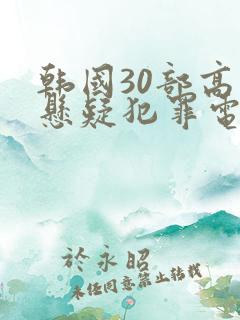 韩国30部高
悬疑犯罪电
於永昭
未经同意禁止转载